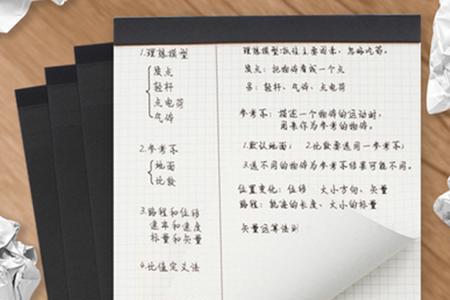 1.理想模型
质点
轻杆
点电荷
气体
2.参考系
地面
比较
3.路程和位移
速率和速度
标量和矢量
4.比值定义法
理想模型:抓住主要因素,忽略次要。
质点:把物体看成一个点
杆、气体、点电荷
参考系:描述一个物体的运动时,
用来作为参考的物体。
1.默认地面; 2.比较要选同一参考系;
3.选不同的物体为参考系结果可能不同。
位置变化:位移 大小方向、矢量
路程:轨迹的长度、大小的标量
矢量运算法则